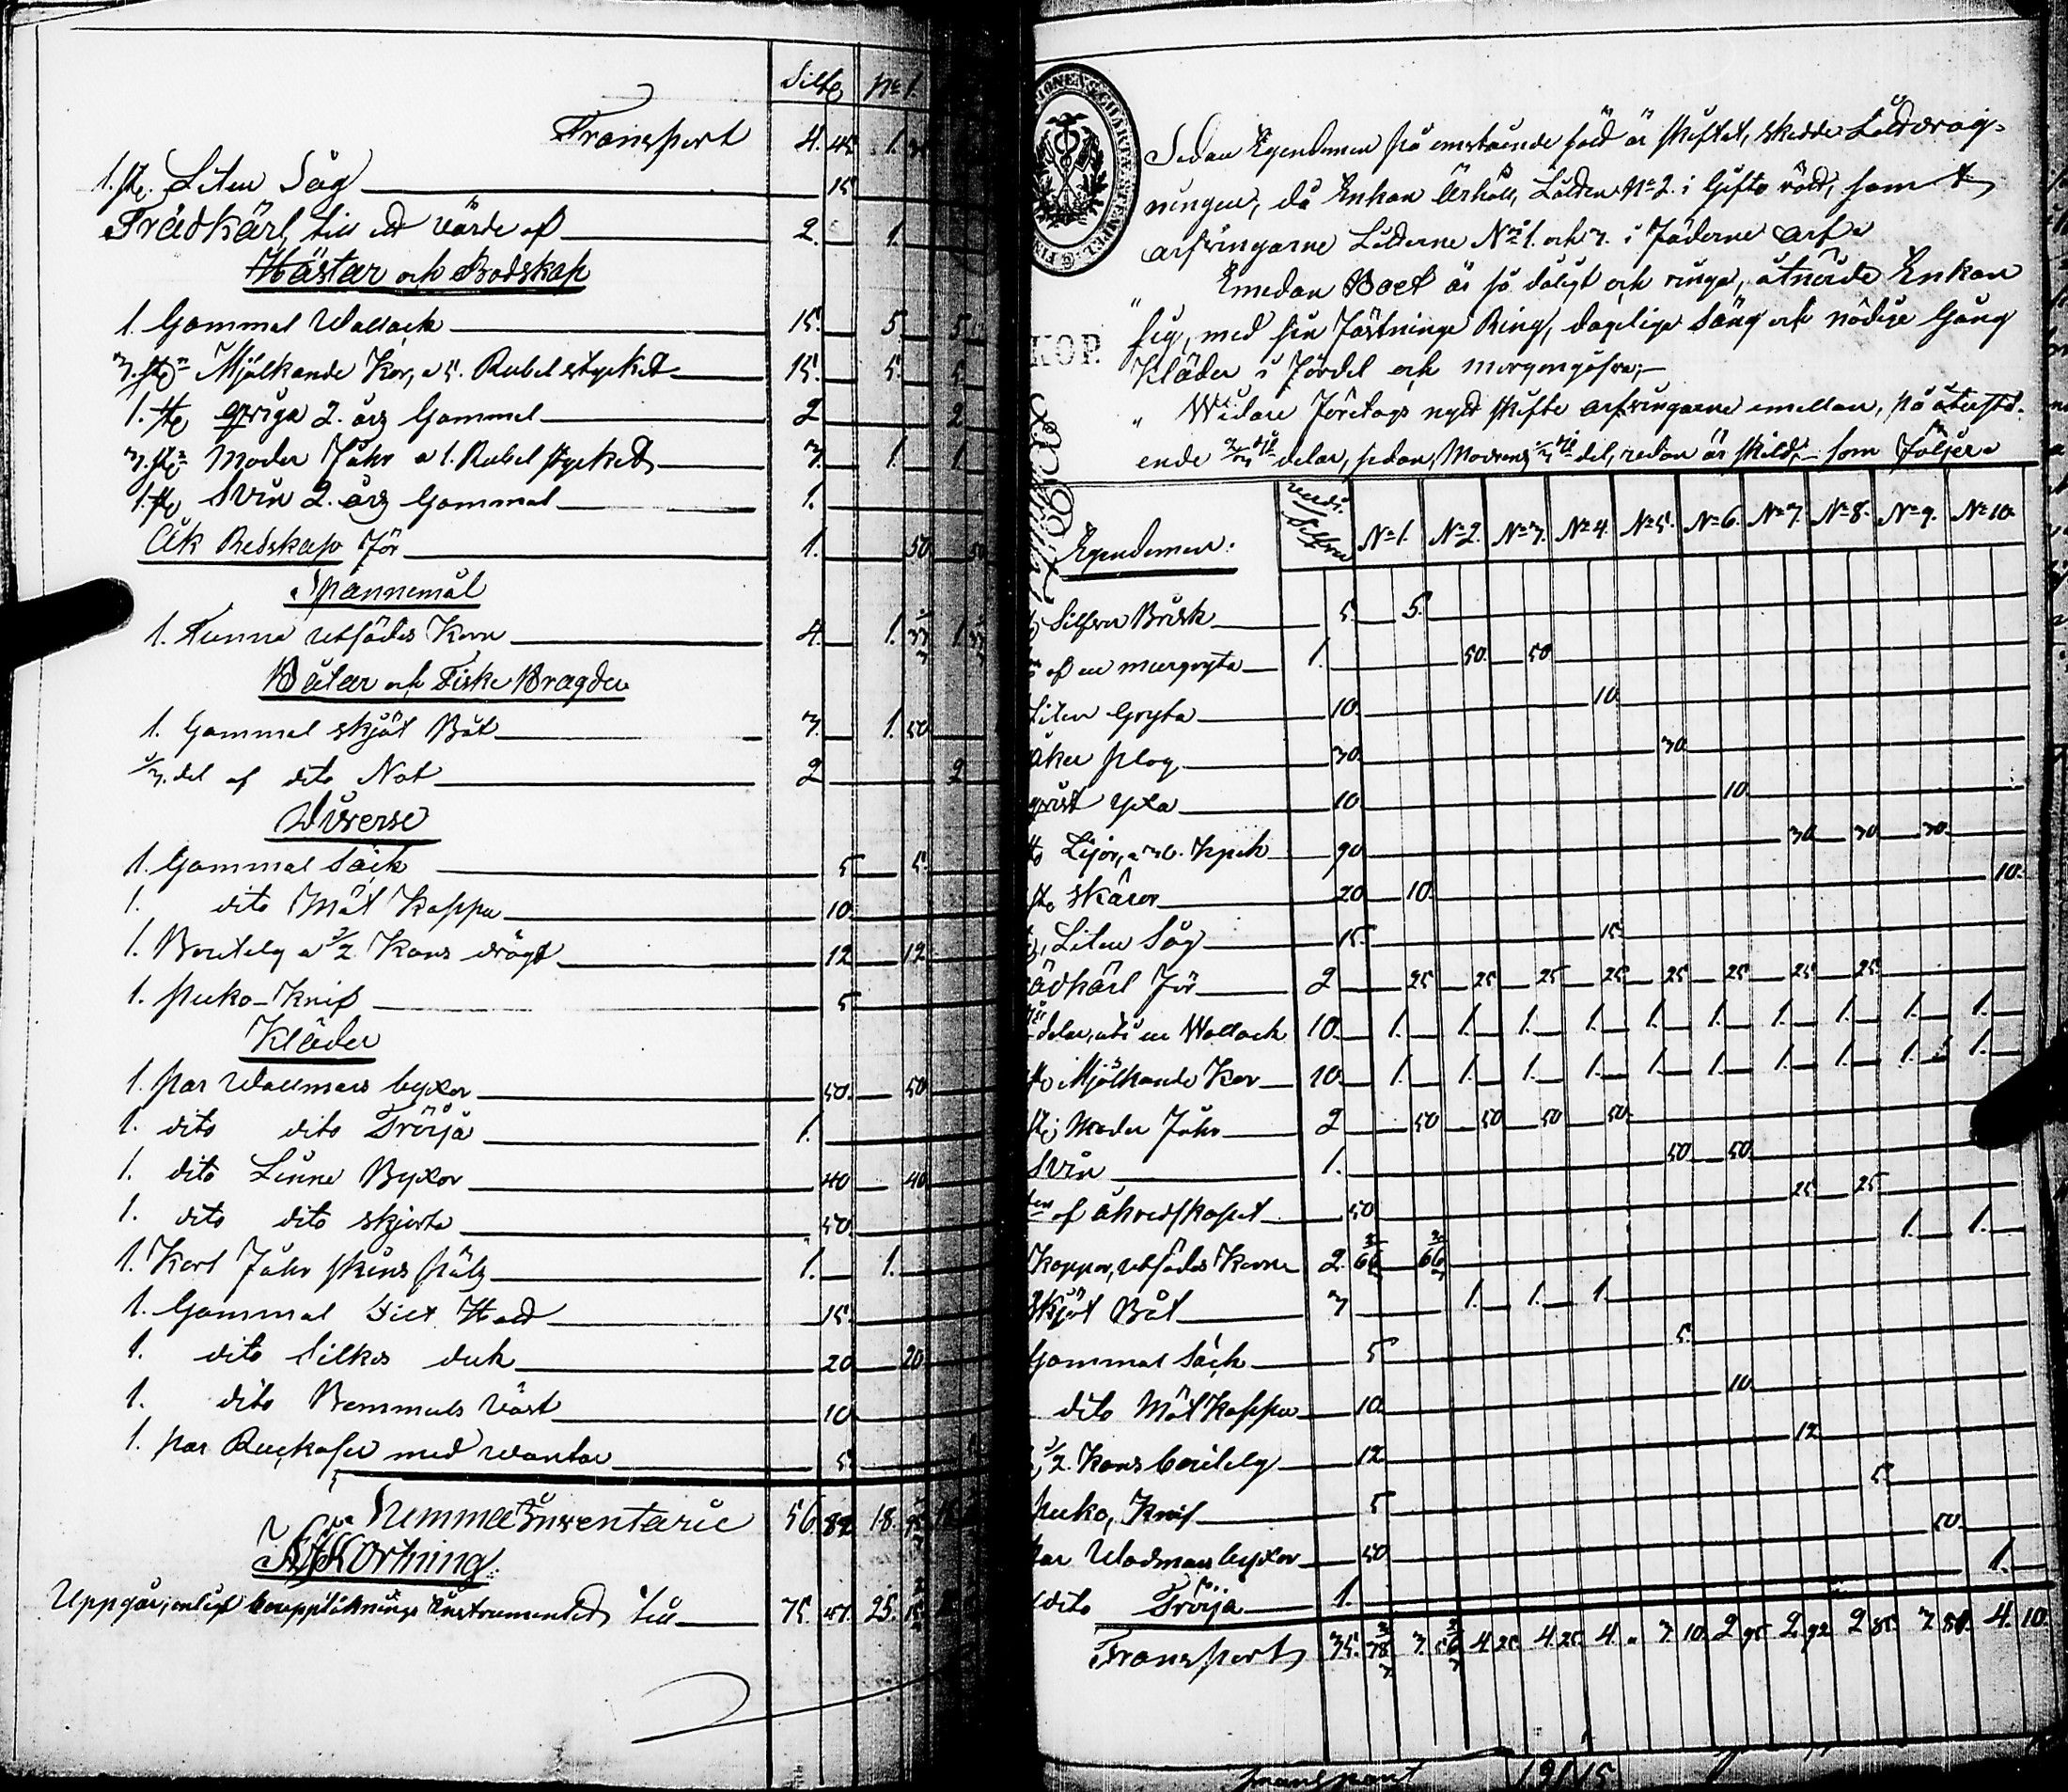 Silfr No 1.
Transport 4. 45 1.
1. st. Liten Såg 15
Trädkärl, till ett värde af 2. 1.
Hästar och Bodskap
1. Gammal Wallack 15. 5 5
3. st. Mjölkande Kor, a 5. Rubel stycket 15. 5. 5
1. st. qviga 2. årg Gammel 2 2
3. st. Moder Fåhr a 1. Rubel stycket 3. 1. 1
1. st. Svin 2. årg Gammal 1.
Åk Redskap för 1. 50 50
Spannemål
1. Tunna utsädes Korn 4. 1. 33 1. 33
Båtar och Fiske Bragder
1. Gammal skjöt Båt 3. 1. 50
1/3. del af dito Not 2 2
Diverse
1. Gammal Säck 5 5.
1. dito Mät Kappa 10
1. Boutelg a 1/2 Kans drägt 12 12
1. puko-Knif 5
Kläder
1. par Wallmars byxor 50. 50
1. dito dito Tröija 1.
1. dito Linne Byxor 40 40
1. dito dito skjorta 50.
1. Karl Fåhr skins pälz 1. 1.
1. Gammal Filt Hatt 15.
1. dito Silkes duk 20 20
1. dito Bommuls väst 10
1. par med wantar 5.
Summa Inventarii 56. 82 18.
Afkortning
Uppgår, enligt Instrumentet till 75. 47. 25.
Sedan Egendomen på omstående sätt är skiftat, skedde Lottdrag-
ningen, då Enkan Erhöll, Lotten No 2. i Gifto rätt, samt
arfvingarne Lotterne No 1. och 3. i Fäderne arf
Emedan Boet är så dåligt och ringa, åtnöide Enkan
sig, med sin Fästninge Ring, dagelige Säng och nödige Gång
KOP.
Kläder i Fördel och morgongåfva,
" Widare Företogs nytt skifte arfvingarne emellan, på återstå-
ende 2/3 delar, sedan, Modrens 1/3 del, redan är skild, som Följer
Egendomen. Silfver No 1. No 2. No 3. No 4. No 5. No 6. No 7. No 8. No 9. No 10.
Silfver Brisk 5. 5.
af en murgryta 1. 50. 50
Liten Gryta 10. 10
åker plog 30. 30
qvist yxa 10. 10.
Lijor, a 30. Kpek 90 30 30 30
st. skäror 20 10. 10.
Liten Såg 15. 15.
ädkärl för 2 25 25 25 25 25 25 25 25
delar, uti en Wallack 10. 1. 1. 1. 1. 1. 1. 1. 1. 1. 1.
Mjölkande Kor 10. 1. 1. 1. 1. 1. 1. 1. 1. 1. 1.
st. Moder Fåhr 2 50 50 50 50
Svin 1. 50 50
af åkredskapet 50 25 25
Kappar, utsädes Korn 2. 66 66 1. 1.
Skjöt Båt 3 1. 1. 1.
Gammal Säck 5 5.
dito Mät Kappa 10. 10
1/2. Kans boutelg 12 12
puko, Knif 5 5.
par Wadmars byxor 50 50
dito Tröija 1. 1.
Transport 35. 78 3. 56 4 25 4 25 4. " 3. 10 2 95 2. 92 2 85 3 80 4. 10
transport